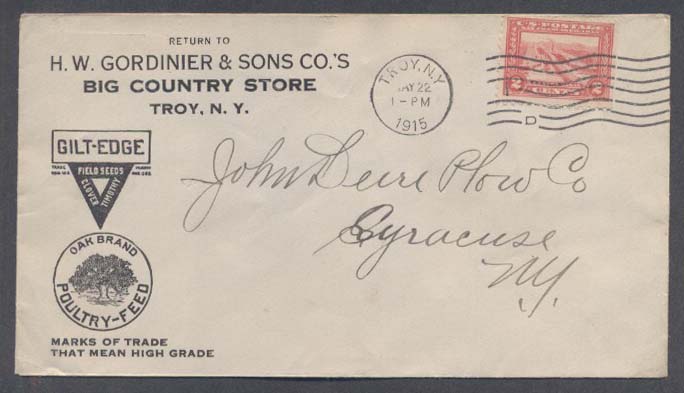 RETURN TO
H. W. GORDINIER & SONS CO.'S
BIG COUNTRY STORE
TROY, N. Y.
TROY, N.Y.
MAY 22
1-PM
1915
D
U.S. POSTAGE
2 2
CENTS
GILT-EDGE
FIELD SEEDS
CLOVER
TIMOTHY
OAK BRAND
POULTRY-FEED
MARKS OF TRADE
THAT MEAN HIGH GRADE
John Deere Plow Co
Syracuse
NY.